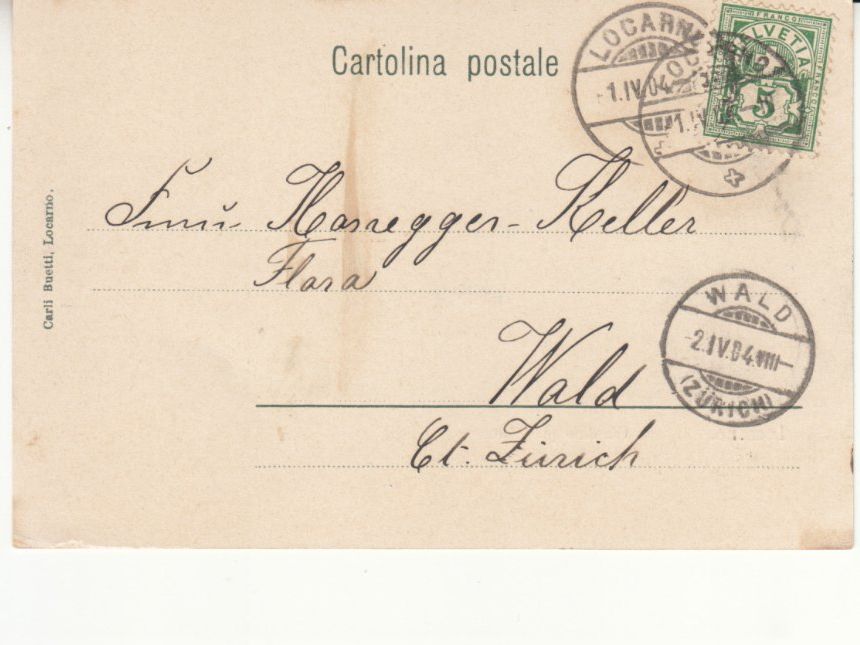 Cartolina postale
FRANCO
HELVETIA
5
LOCARNO
1.IV.04
Frau Honegger-Keller
Flora
Wald
Ct. Zürich
WALD
2.IV.04.VIII
(ZÜRICH)
Carli Buetti, Locarno.